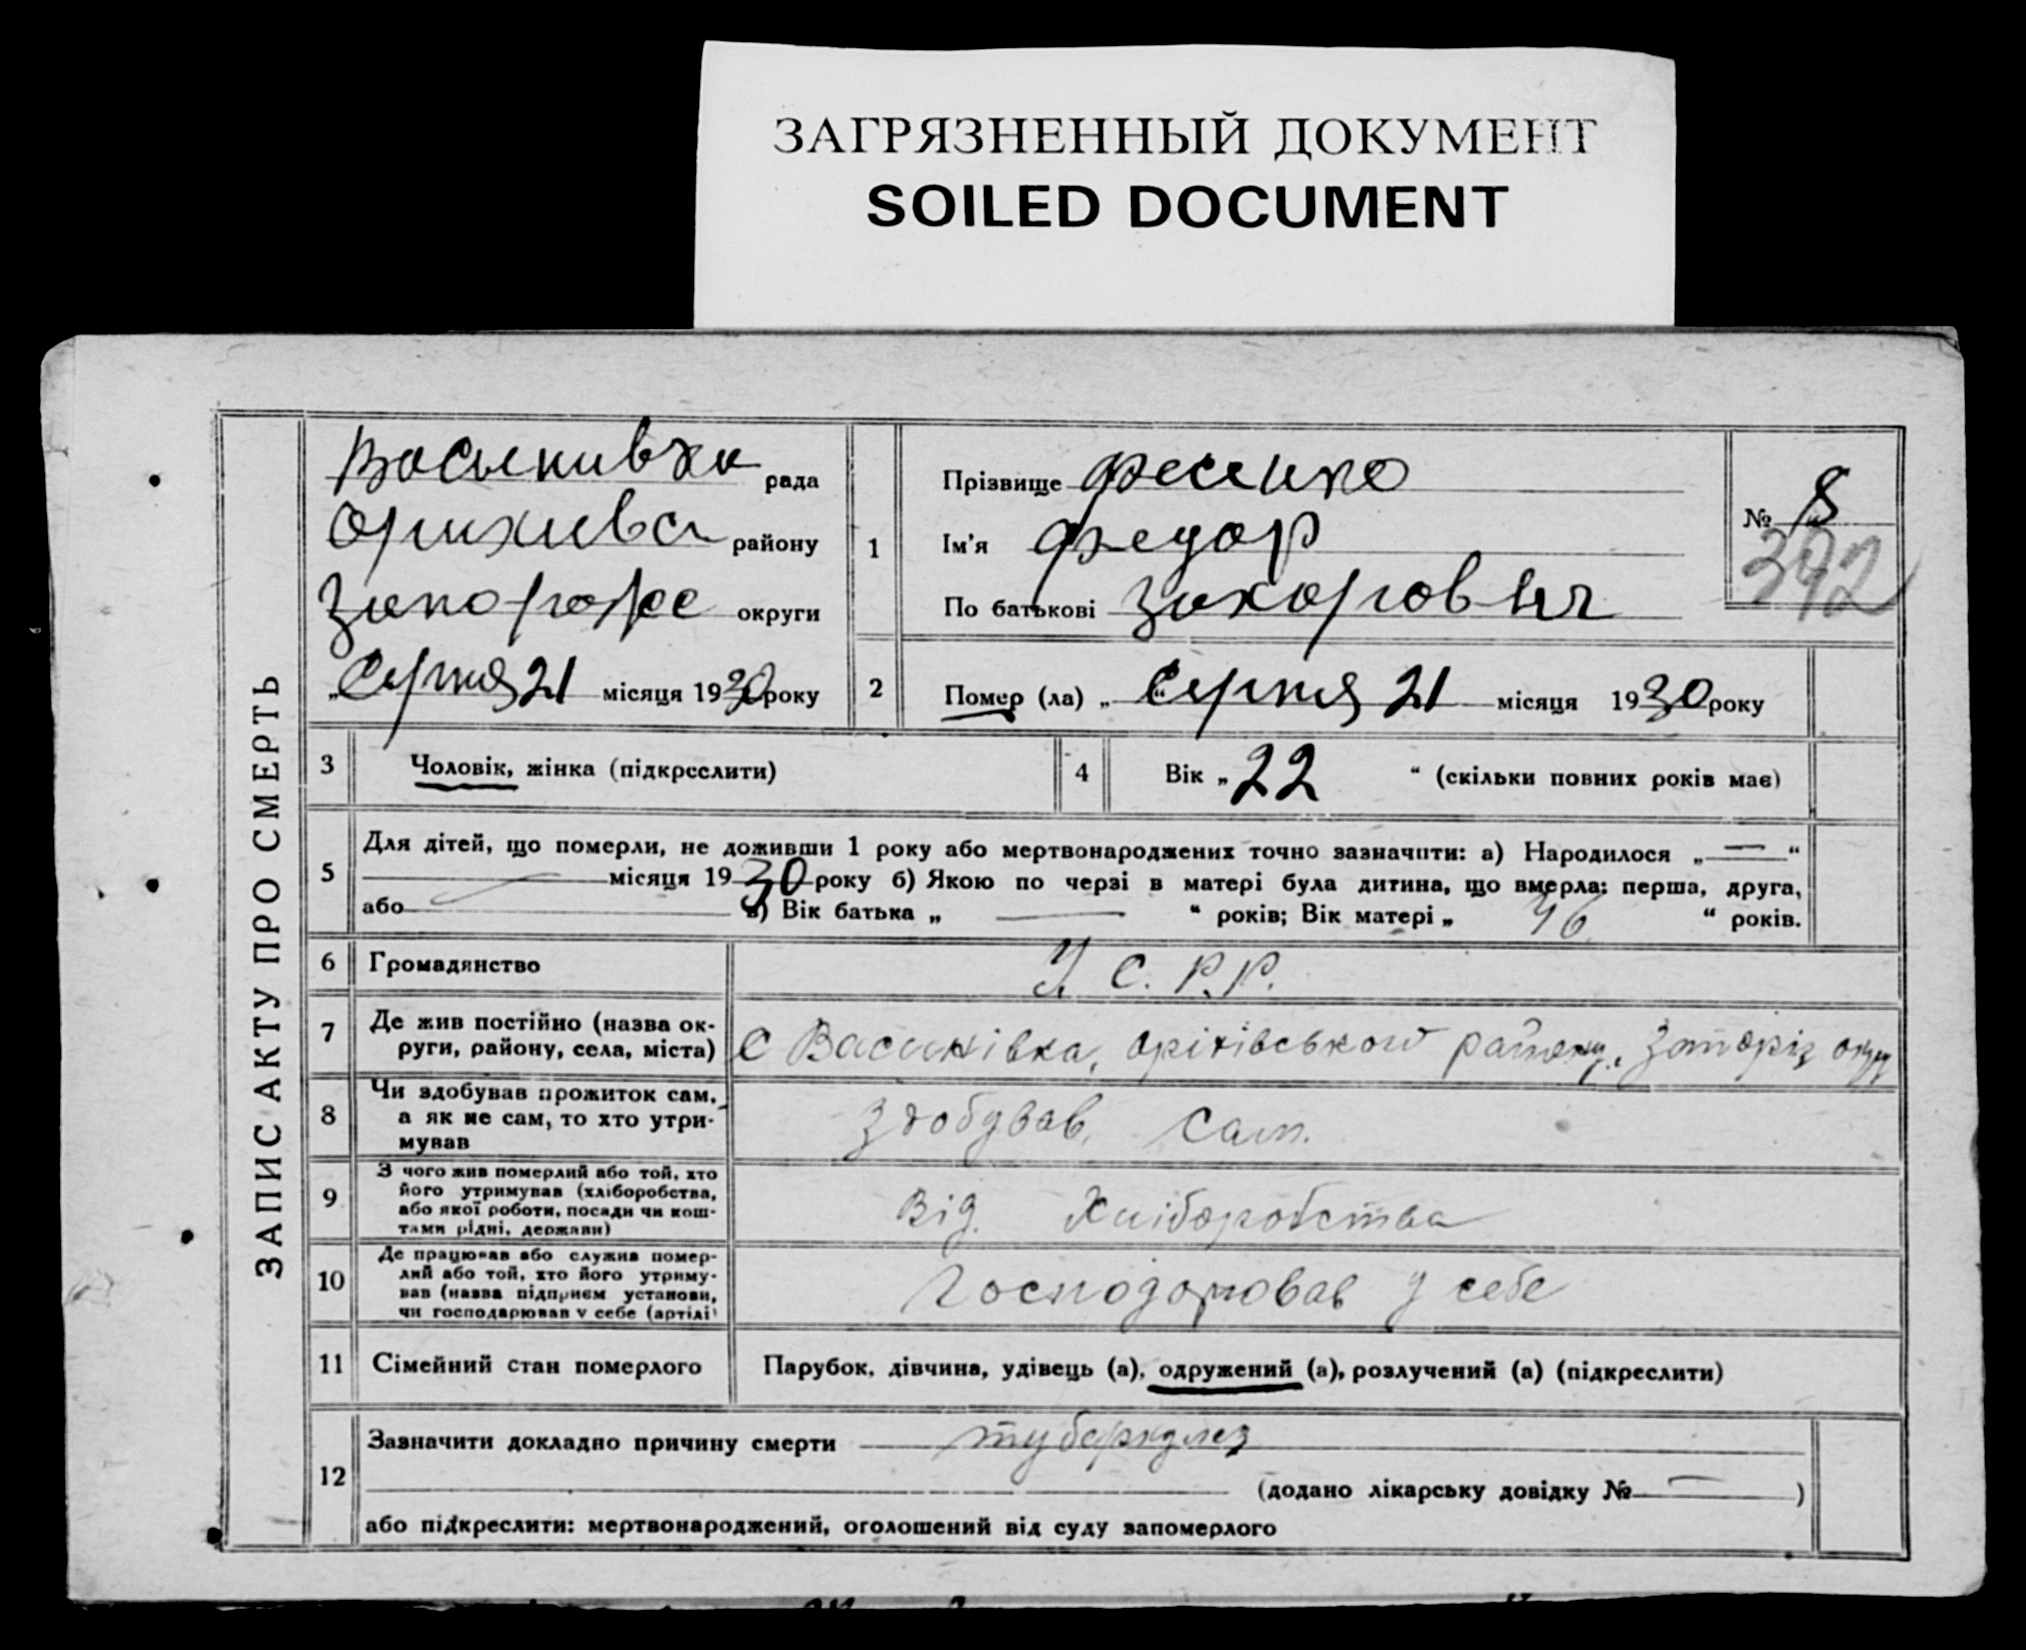 ЗАГРЯЗНЕННЫЙ ДОКУМЕНТ
SOILED DOCUMENT
ЗАПИС АКТУ ПРО СМЕРТЬ
Васыкивка рада
Орихива району
Запорожже округи
„Серпня 21 місяця 1930 року
1
Прізвище Фесенко
Ім'я Федор
По батькові Захоровыч
№ 8
392
2 Помер (ла) „ Серпня 21 місяця 1930 року
3 Чоловік, жінка (підкреслити)
4 Вік „ 22 “ (скільки повних років має)
5 Для дітей, що померли, не доживши 1 року або мертвонароджених точно зазначити: а) Народилося „ — “
місяця 1930 року б) Якою по черзі в матері була дитина, що вмерла: перша, друга,
або в) Вік батька „ — “ років; Вік матері „ “ років.
6 Громадянство У. С. Р. Р.
7 Де жив постійно (назва ок-
руги, району, села, міста) с Василківка, Оріхівського району, Запоріз окр
8 Чи здобував прожиток сам,
а як не сам, то хто утри-
мував
здобував сам.
9 З чого жив померлий або той, хто
його утримував (хліборобства,
або якої роботи, посади чи кош-
тами рідні, держави)
від. Хліборобства
10 Де працював або служив помер-
лий або той, хто його утриму-
вав (назва підприєм установи,
чи господарював у себе (артілі)
Господорював у себе
11 Сімейний стан померлого Парубок, дівчина, удівець (а), одружений (а), розлучений (а) (підкреслити)
12 Зазначити докладно причину смерти туберкулез
(додано лікарську довідку № — )
або підкреслити: мертвонароджений, оголошений від суду запомерлого